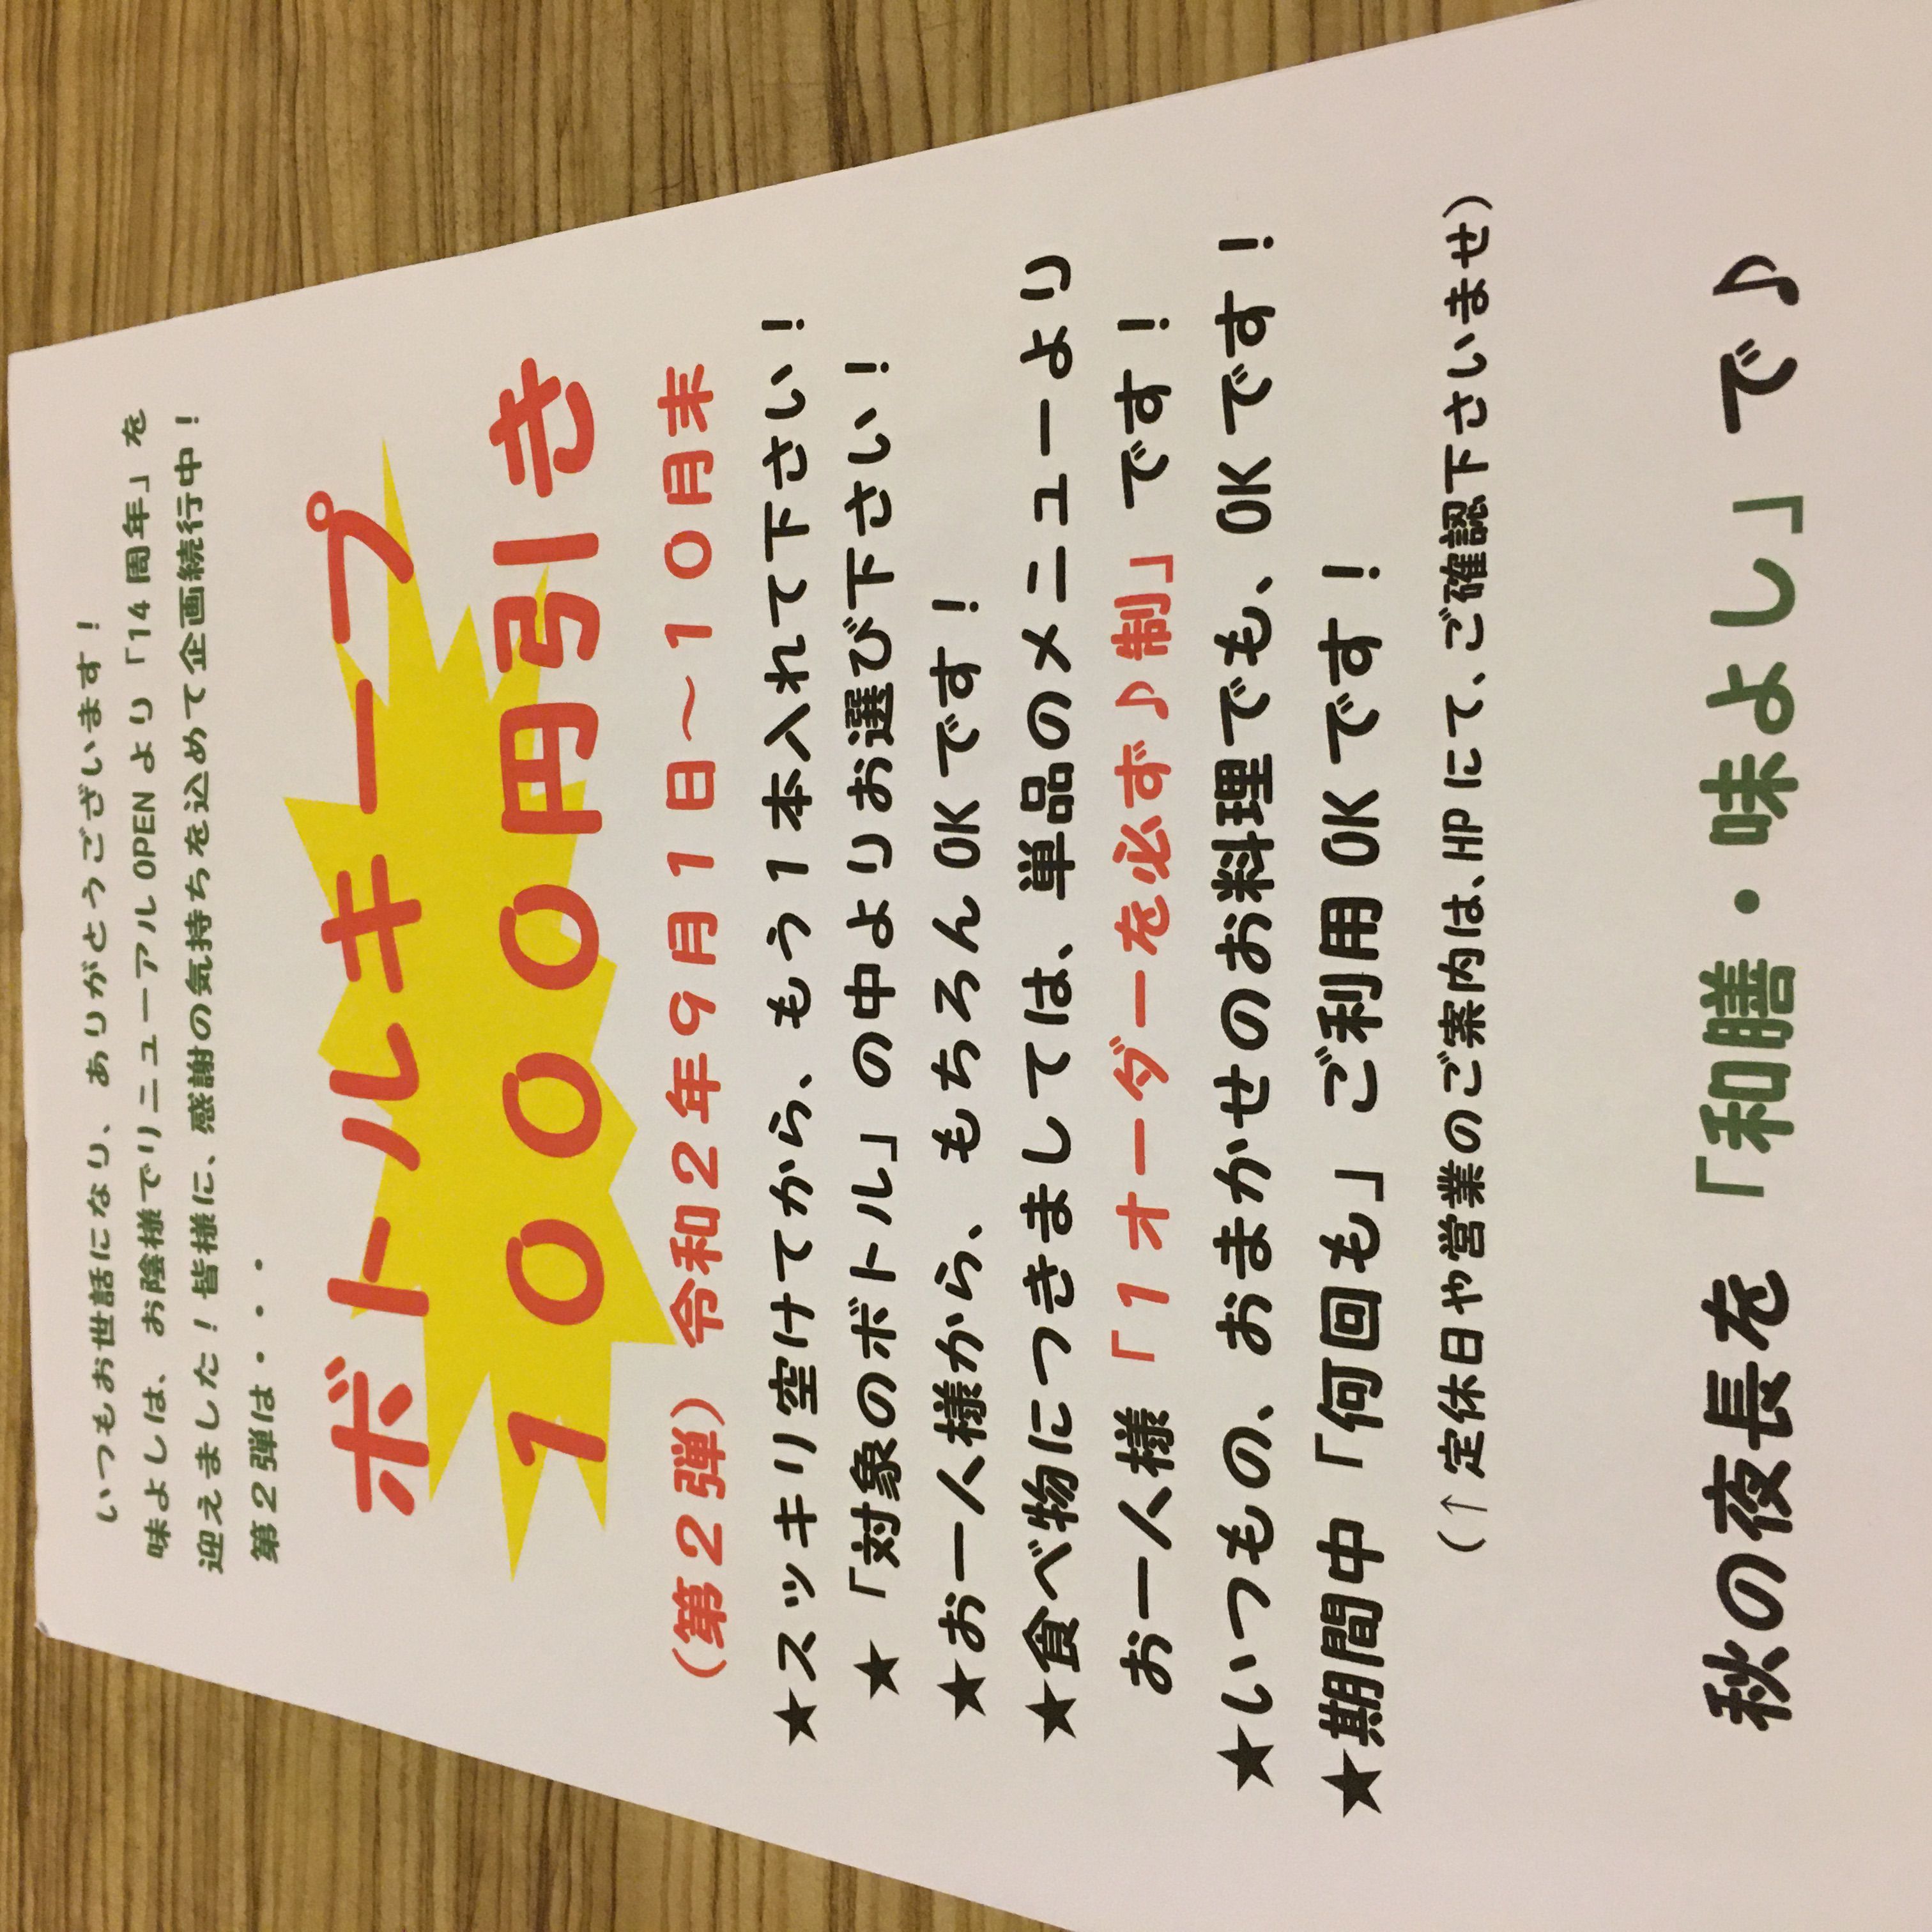 いつもお世話になり、ありがとうございます！
味よしは、お陰様でリニューアルOPENより「14周年」を
迎えました！皆様に、感謝の気持ちを込めて企画続行中！
第２弾は・・・・
ボトルキープ
１０００円引き
（第２弾）令和２年９月１日～１０月末
★スッキリ空けてから、もう１本入れて下さい！
★「対象のボトル」の中よりお選び下さい！
★お一人様から、もちろんOKです！
★食べ物につきましては、単品のメニューより
お一人様「１オーダーを必ず♪制」です！
★いつもの、おまかせのお料理でも、OKです！
★期間中「何回も」ご利用OKです！
（↑定休日や営業のご案内は、HPにて、ご確認下さいませ）
秋の夜長を「和膳・味よし」で♪